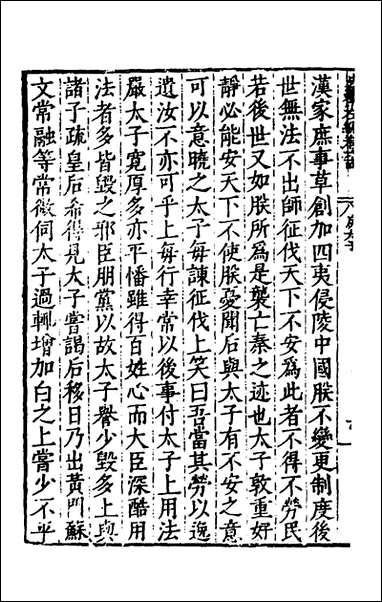 漢家庶事草創加四夷侵陵中國朕不變更制度後
世無法不出師征伐天下不安爲此者不得不勞民
若後世又如朕所爲是襲亡秦之迹也太子敦重好
靜必能安天下不使朕憂聞后與太子有不安之意
可以意曉之太子每諫征伐上笑曰吾當其勞以逸
遺汝不亦可乎上每行幸常以後事付太子上用法
嚴太子寛厚多亦平憣雖得百姓心而大臣深酷用
法者多皆毀之邪臣朋黨以故太子譽少毀多上與
諸子疏皇后希得見太子嘗謁后移日乃出黃門蘇
文常融等常微伺太子過輒增加白之上嘗少不平